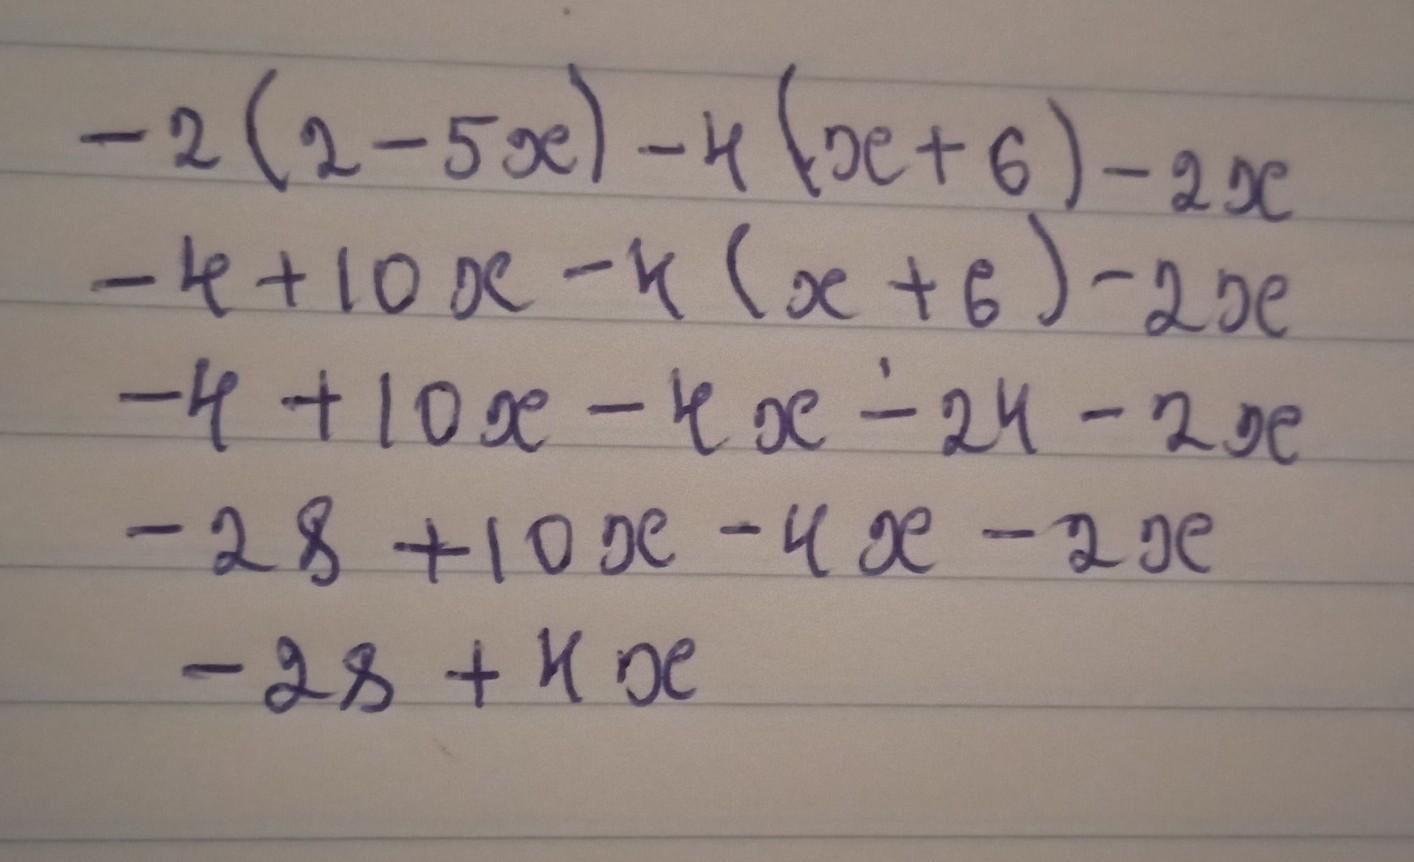 -2(2-5x)-4(x+6)-2x
-4+10x-4(x+6)-2x
-4+10x-4x-24-2x
-28+10x-4x-2x
-28+4x